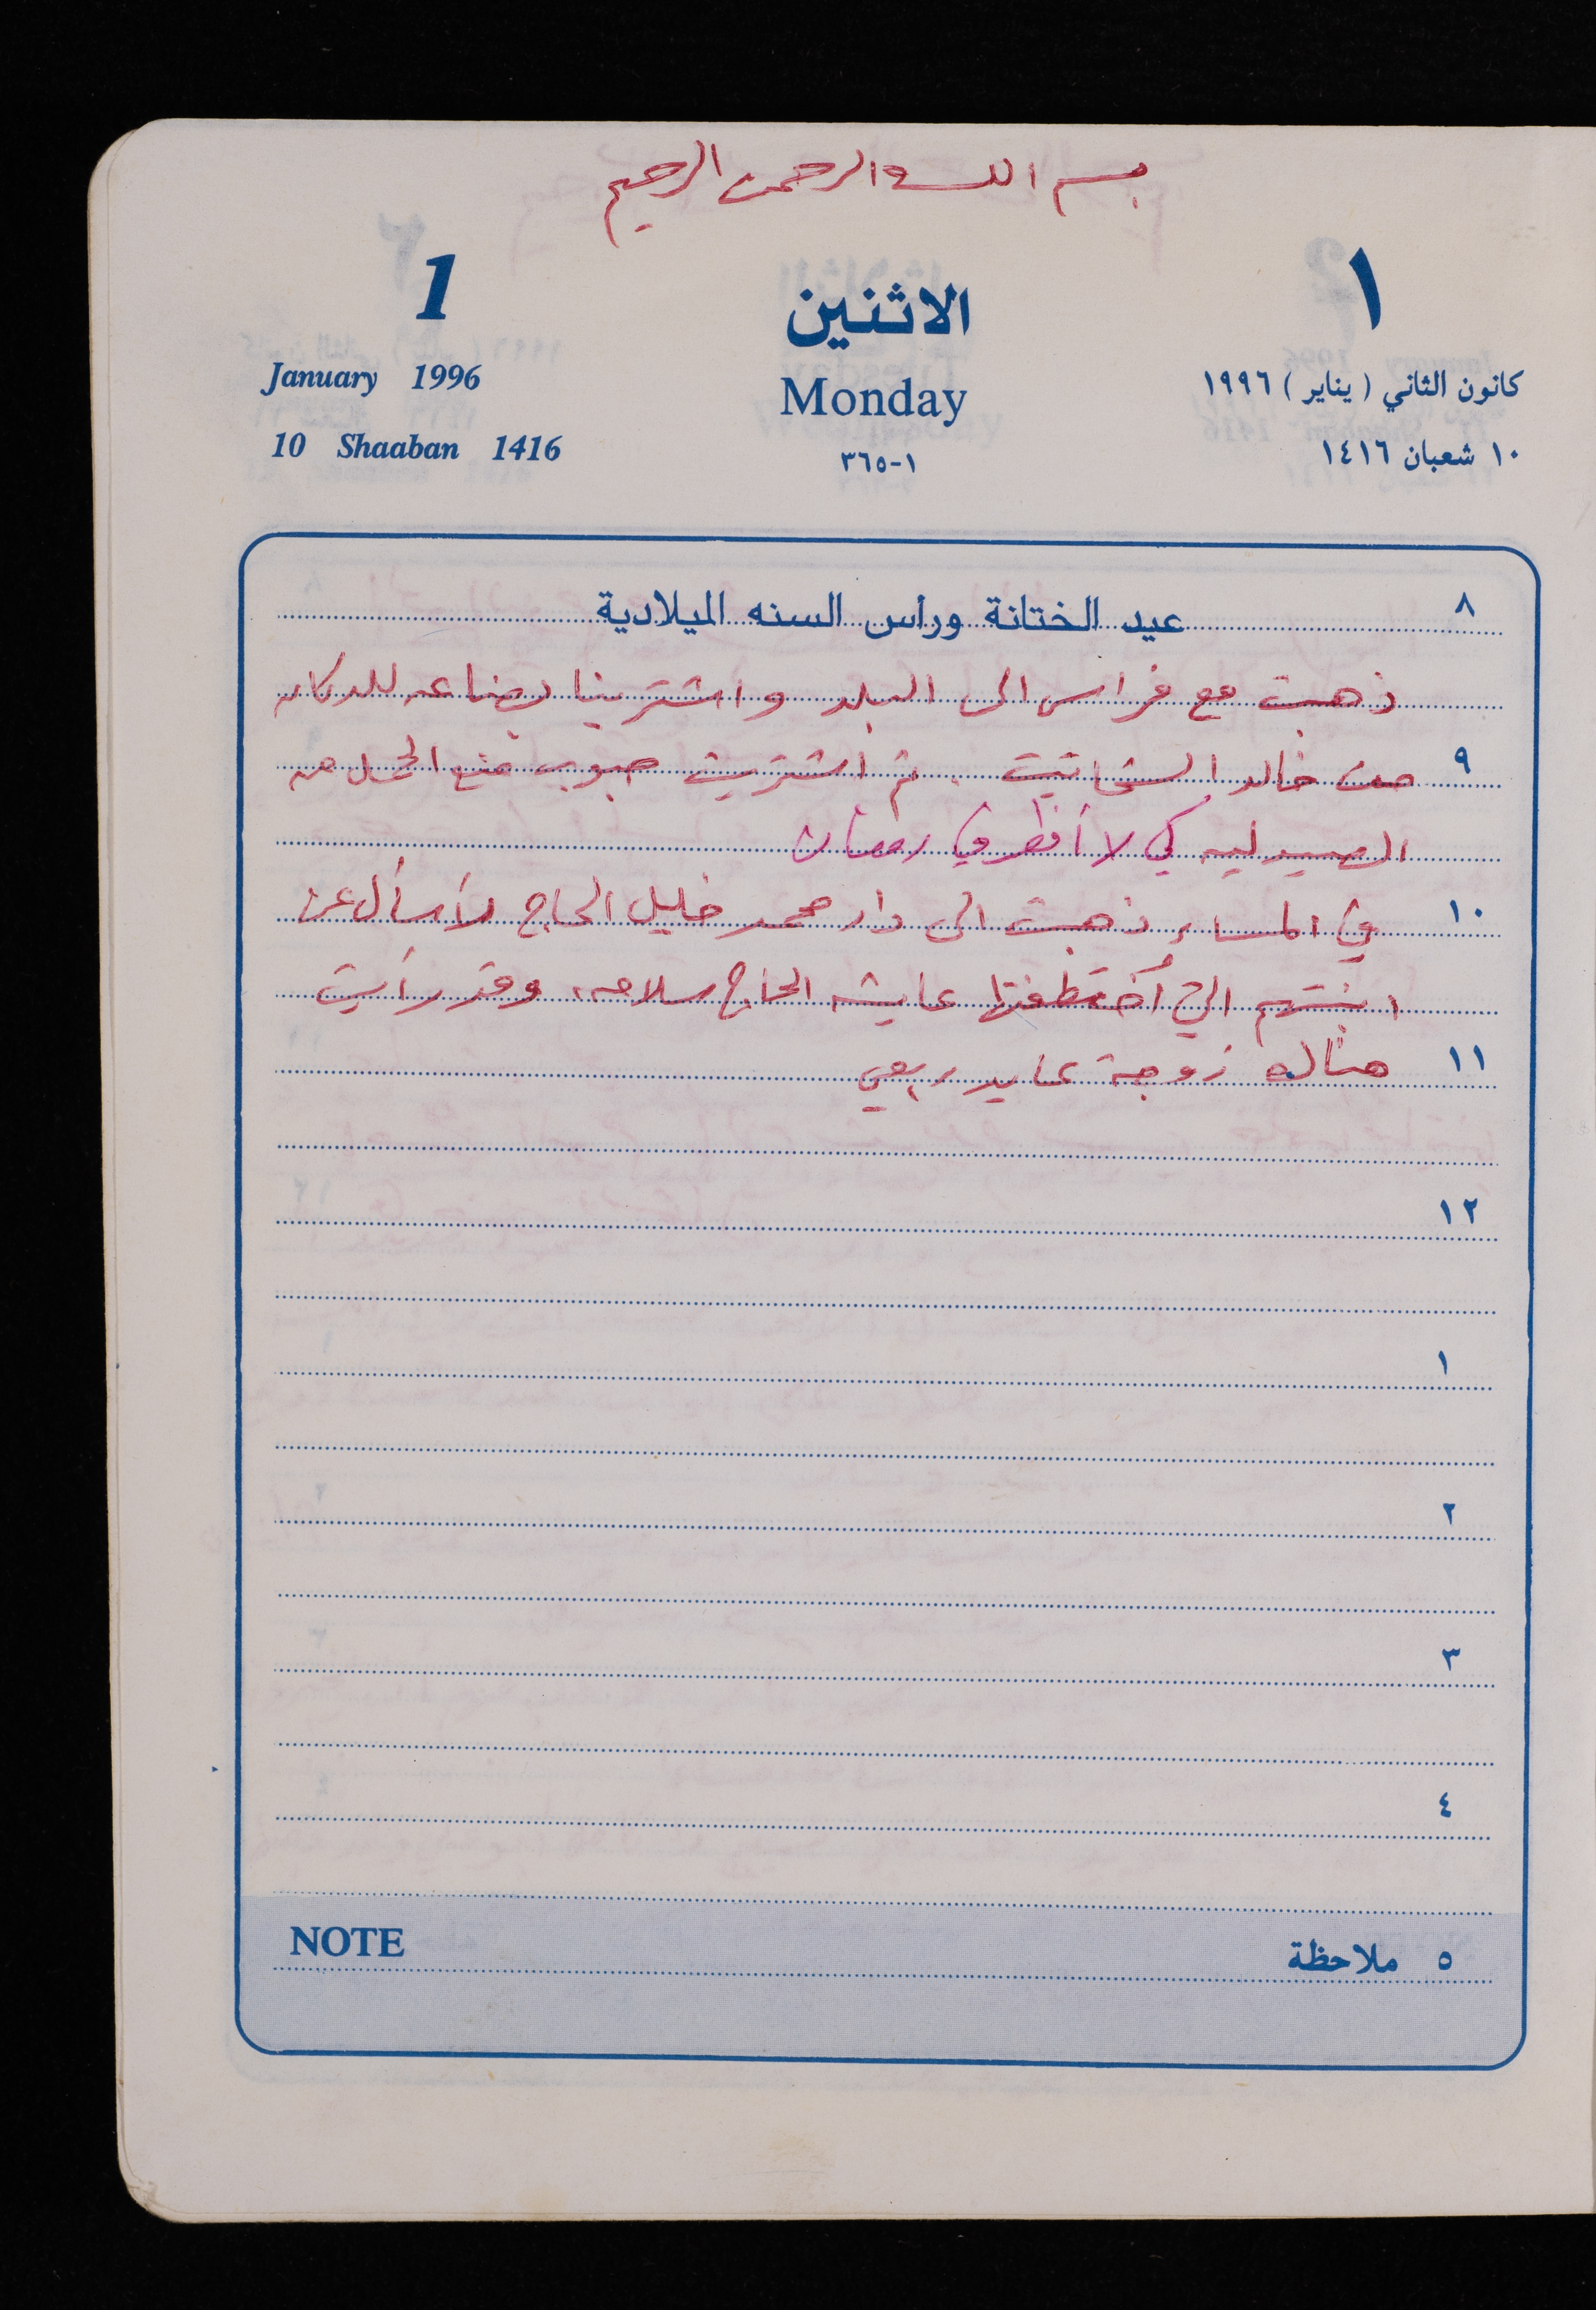 بسم الله الرحمن الرحيم
1 الاثنين ١
January 1996 Monday كانون الثاني (يناير) ١٩٩٦
10 Shaaban 1416 ١-٣٦٥ ١٠ شعبان ١٤١٦
٨ عيد الختانة ورأس السنه الميلادية
ذهبت مع فراس الى البلد واشترينا بضاعه للدكان
٩ من خالد السختيت . ثم اشتريت حبوب منع الحمل من
الصيدليه كي لا أفطر في رمضان
١٠ في المساء ذهبت الى دار محمد خليل الحاج لأسأل عن
ابنتهم التي أختطفتها عايشه الحاج سلامه، وقد رأيت
١١ هناك زوجة عايد ربعي
١٢
١
٢
٣
٤
NOTE ٥ ملاحظة